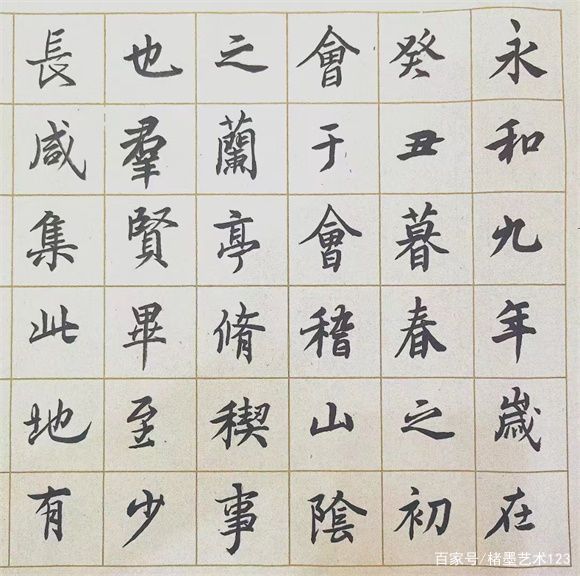 永和九年歲在
癸丑暮春之初
會于會稽山陰
之蘭亭脩稧事
也羣賢畢至少
長咸集此地有
百家号/楮墨艺术123